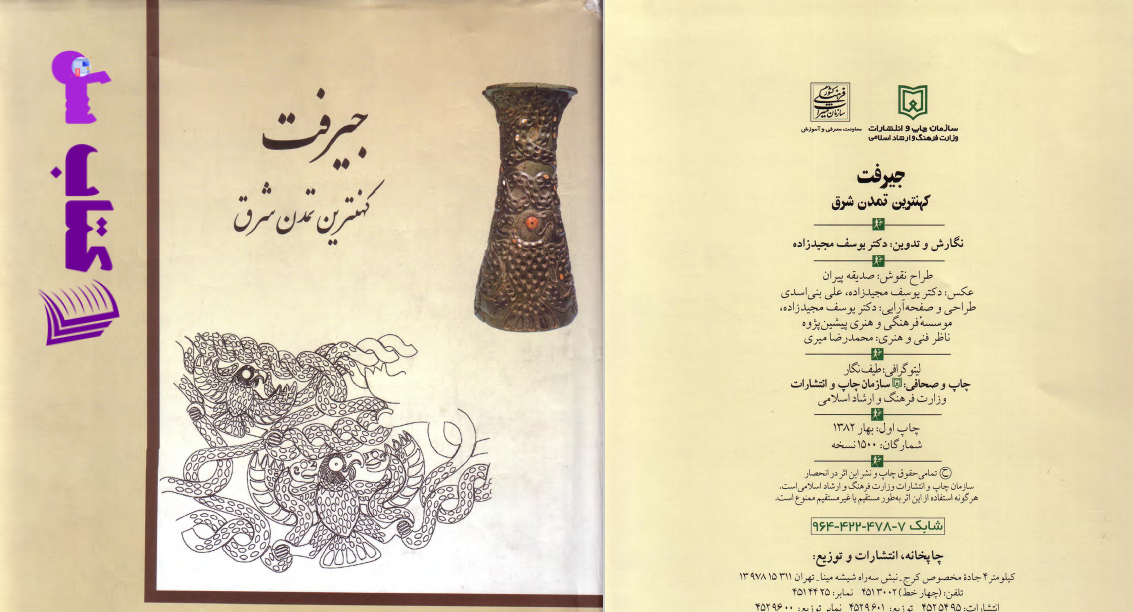 سل
کتاب
جیرفت
کهنترین تمدن شرق
سازمان میراث فرهنگی کشور
معاونت معرفی و آموزش
سازمان چاپ و انتشارات
وزارت فرهنگ و ارشاد اسلامی
جیرفت
کهنترین تمدن شرق
نگارش و تدوین: دکتر یوسف مجیدزاده
طراح نقوش: صدیقه پیران
عکس: دکتر یوسف مجیدزاده، علی بنی‌اسدی
طراحی و صفحه‌آرایی: دکتر یوسف مجیدزاده،
موسسهٔ فرهنگی و هنری پیشین‌پژوه
ناظر فنی و هنری: محمدرضا میری
لیتوگرافی: طیف‌نگار
چاپ و صحافی: سازمان چاپ و انتشارات
وزارت فرهنگ و ارشاد اسلامی
چاپ اول: بهار ۱۳۸۲
شمارگان: ۱۵۰۰ نسخه
© تمامی حقوق چاپ و نشر این اثر در انحصار
سازمان چاپ و انتشارات وزارت فرهنگ و ارشاد اسلامی است.
هرگونه استفاده از این اثر به‌طور مستقیم یا غیرمستقیم ممنوع است.
شابک ۷-۴۷۸-۴۲۲-۹۶۴
چاپخانه، انتشارات و توزیع:
کیلومتر ۴ جادهٔ مخصوص کرج ـ نبش سه‌راه شیشه مینا ـ تهران ۳۱۱ ۱۵ ۱۳۹۷۸
تلفن: (چهار خط) ۴۵۱۳۰۰۲ نمابر: ۴۵۱۴۴۲۵
انتشارات: ۴۵۲۵۴۹۵ توزیع: ۴۵۲۹۶۰۱ نمابر توزیع: ۴۵۲۹۶۰۰